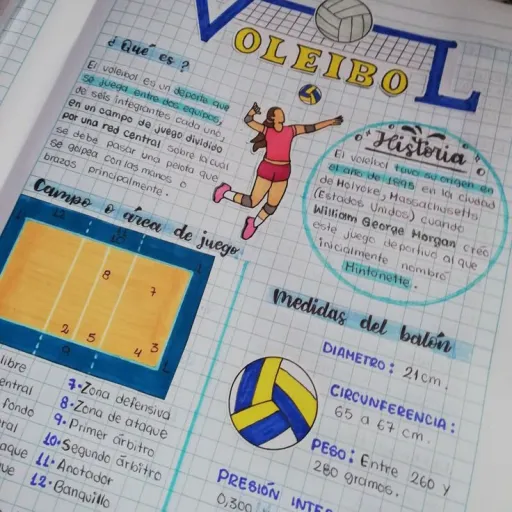 VOLEIBOL
¿Qué es?
El voleibol es un deporte que
se juega entre dos equipos,
de séis integrantes cada uno,
en un campo de juego dividido
por una red central sobre la cual
se debe pasar una pelota que
se golpea con las manos o
brazos principalmente.
Historia
El voleibol tuvo su origen en
el año de 1895 en la ciudad
de Holyoke, Massachusetts
(Estados Unidos) cuando
William George Morgan creó
este juego deportivo al que
inicialmente nombró
Mintonette.
Campo o área de juego
8
7
2
5
4
3
9
libre
entral
fondo
ral
aque
ue
7·Zona defensiva
8·Zona de ataque
9·Primer árbitro
10·Segundo árbitro
11·Anotador
12·Banquillo
Medidas del balón
DIAMETRO: 21cm.
CIRCUNFERENCIA:
65 a 67 cm.
PESO: Entre 260 y
280 gramos.
PRESIÓN INTE
0,300